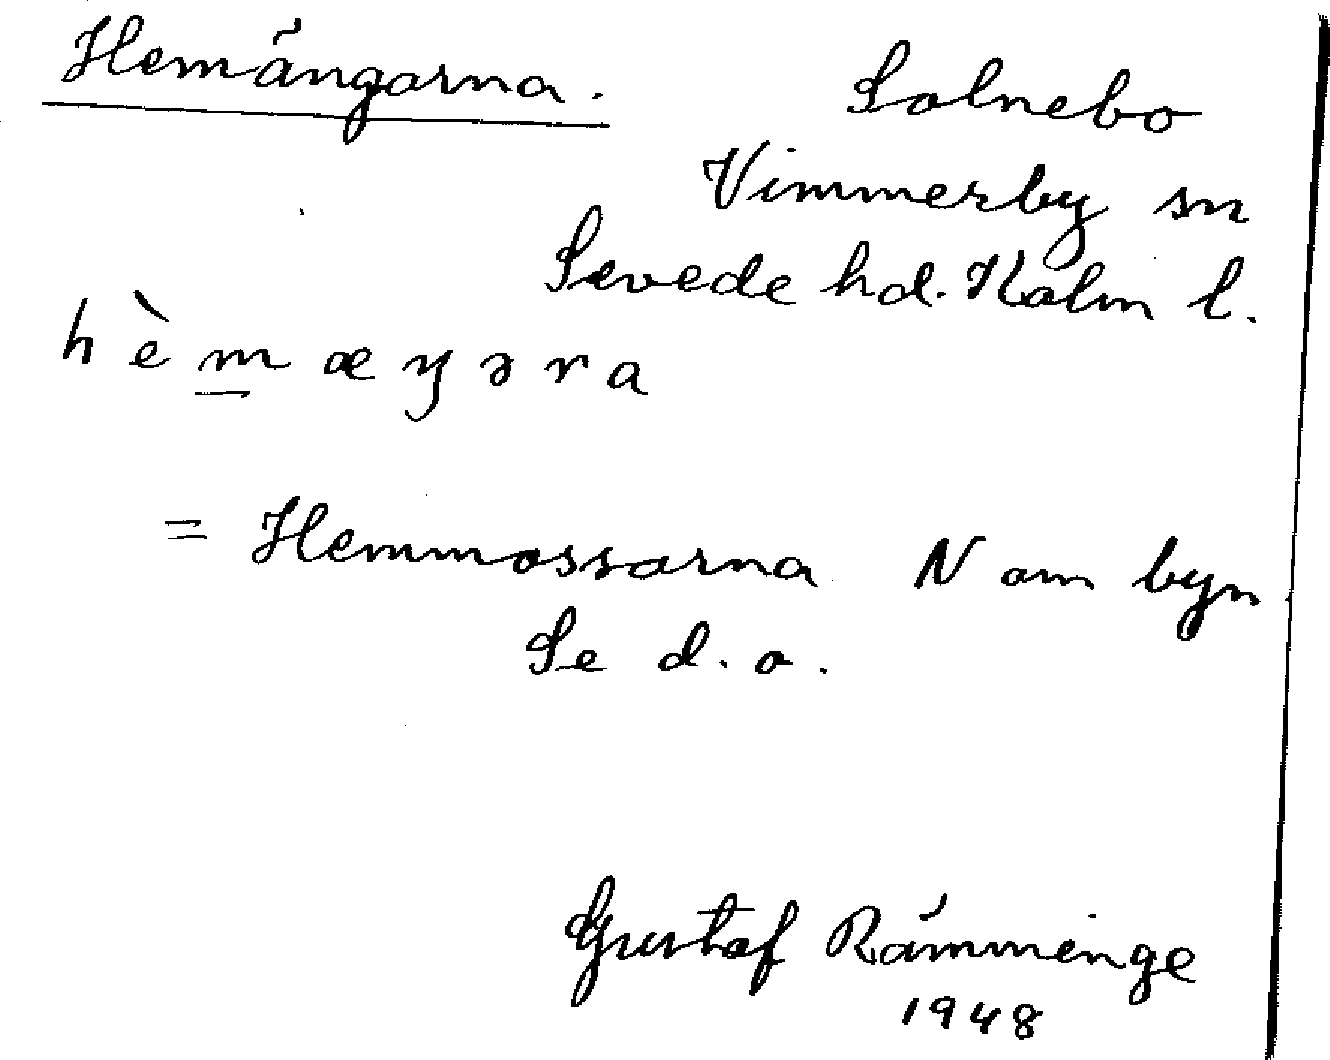 Hemängarna. Solnebo
Vimmerby sn
Sevede hd. Kalm l.
hèmæŋəra
= Hemmossarna N om byn
Se d. o.
Gustaf Rämminge
1948